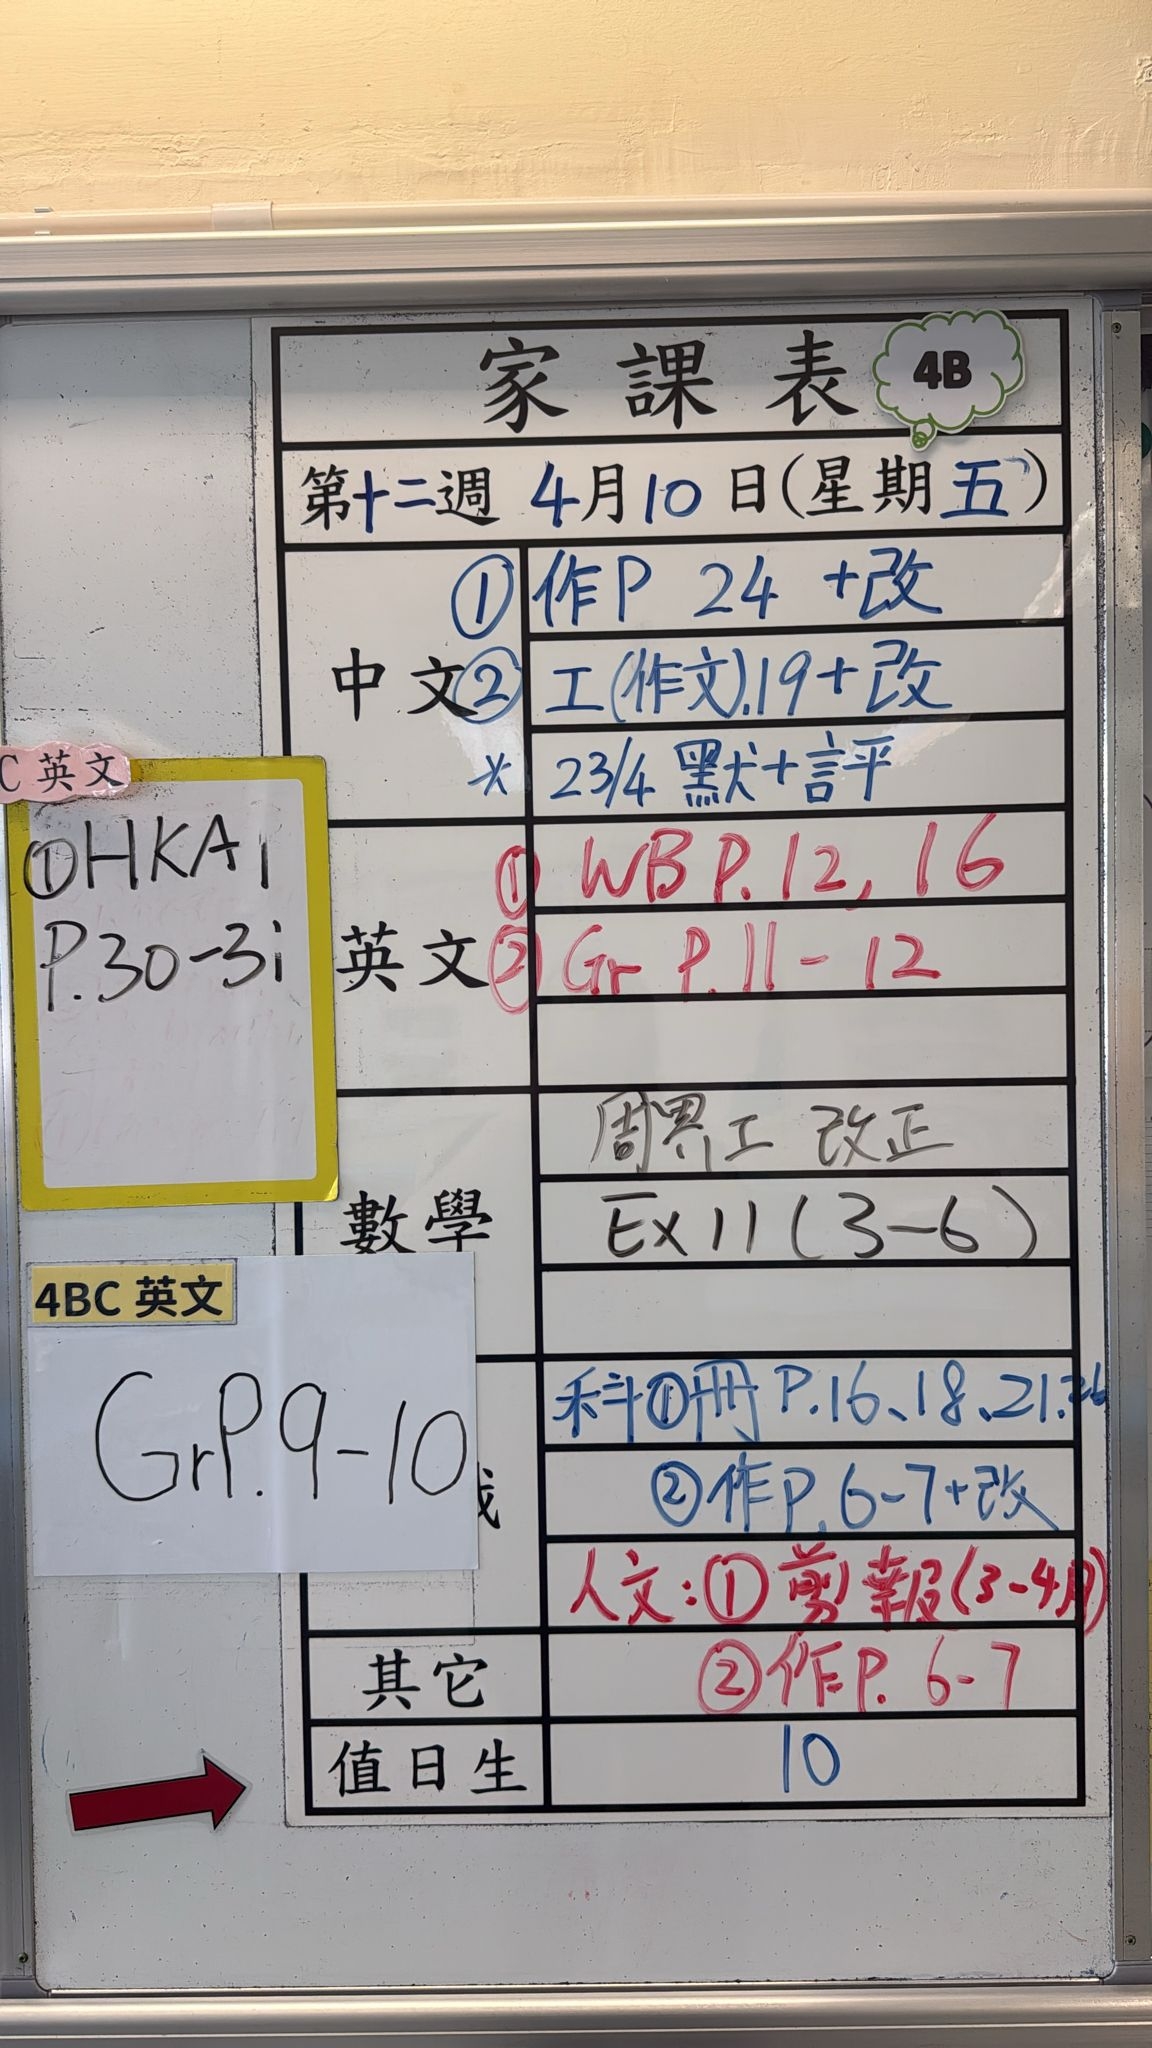 家課表 4B
第十二週 4月10日(星期五)
中文
① 作P 24 +改
② 工(作文).19+改
* 23/4 默+評
英文
① WB P.12, 16
② Gr P.11-12
數學
周界工 改正
Ex 11 (3-6)
科①冊 P.16、18、21、26
②作P. 6-7+改
人文:①剪報(3-4月)
其它
②作P. 6-7
值日生
10
C 英文
①HKAi
P.30-31
4BC 英文
GrP.9-10